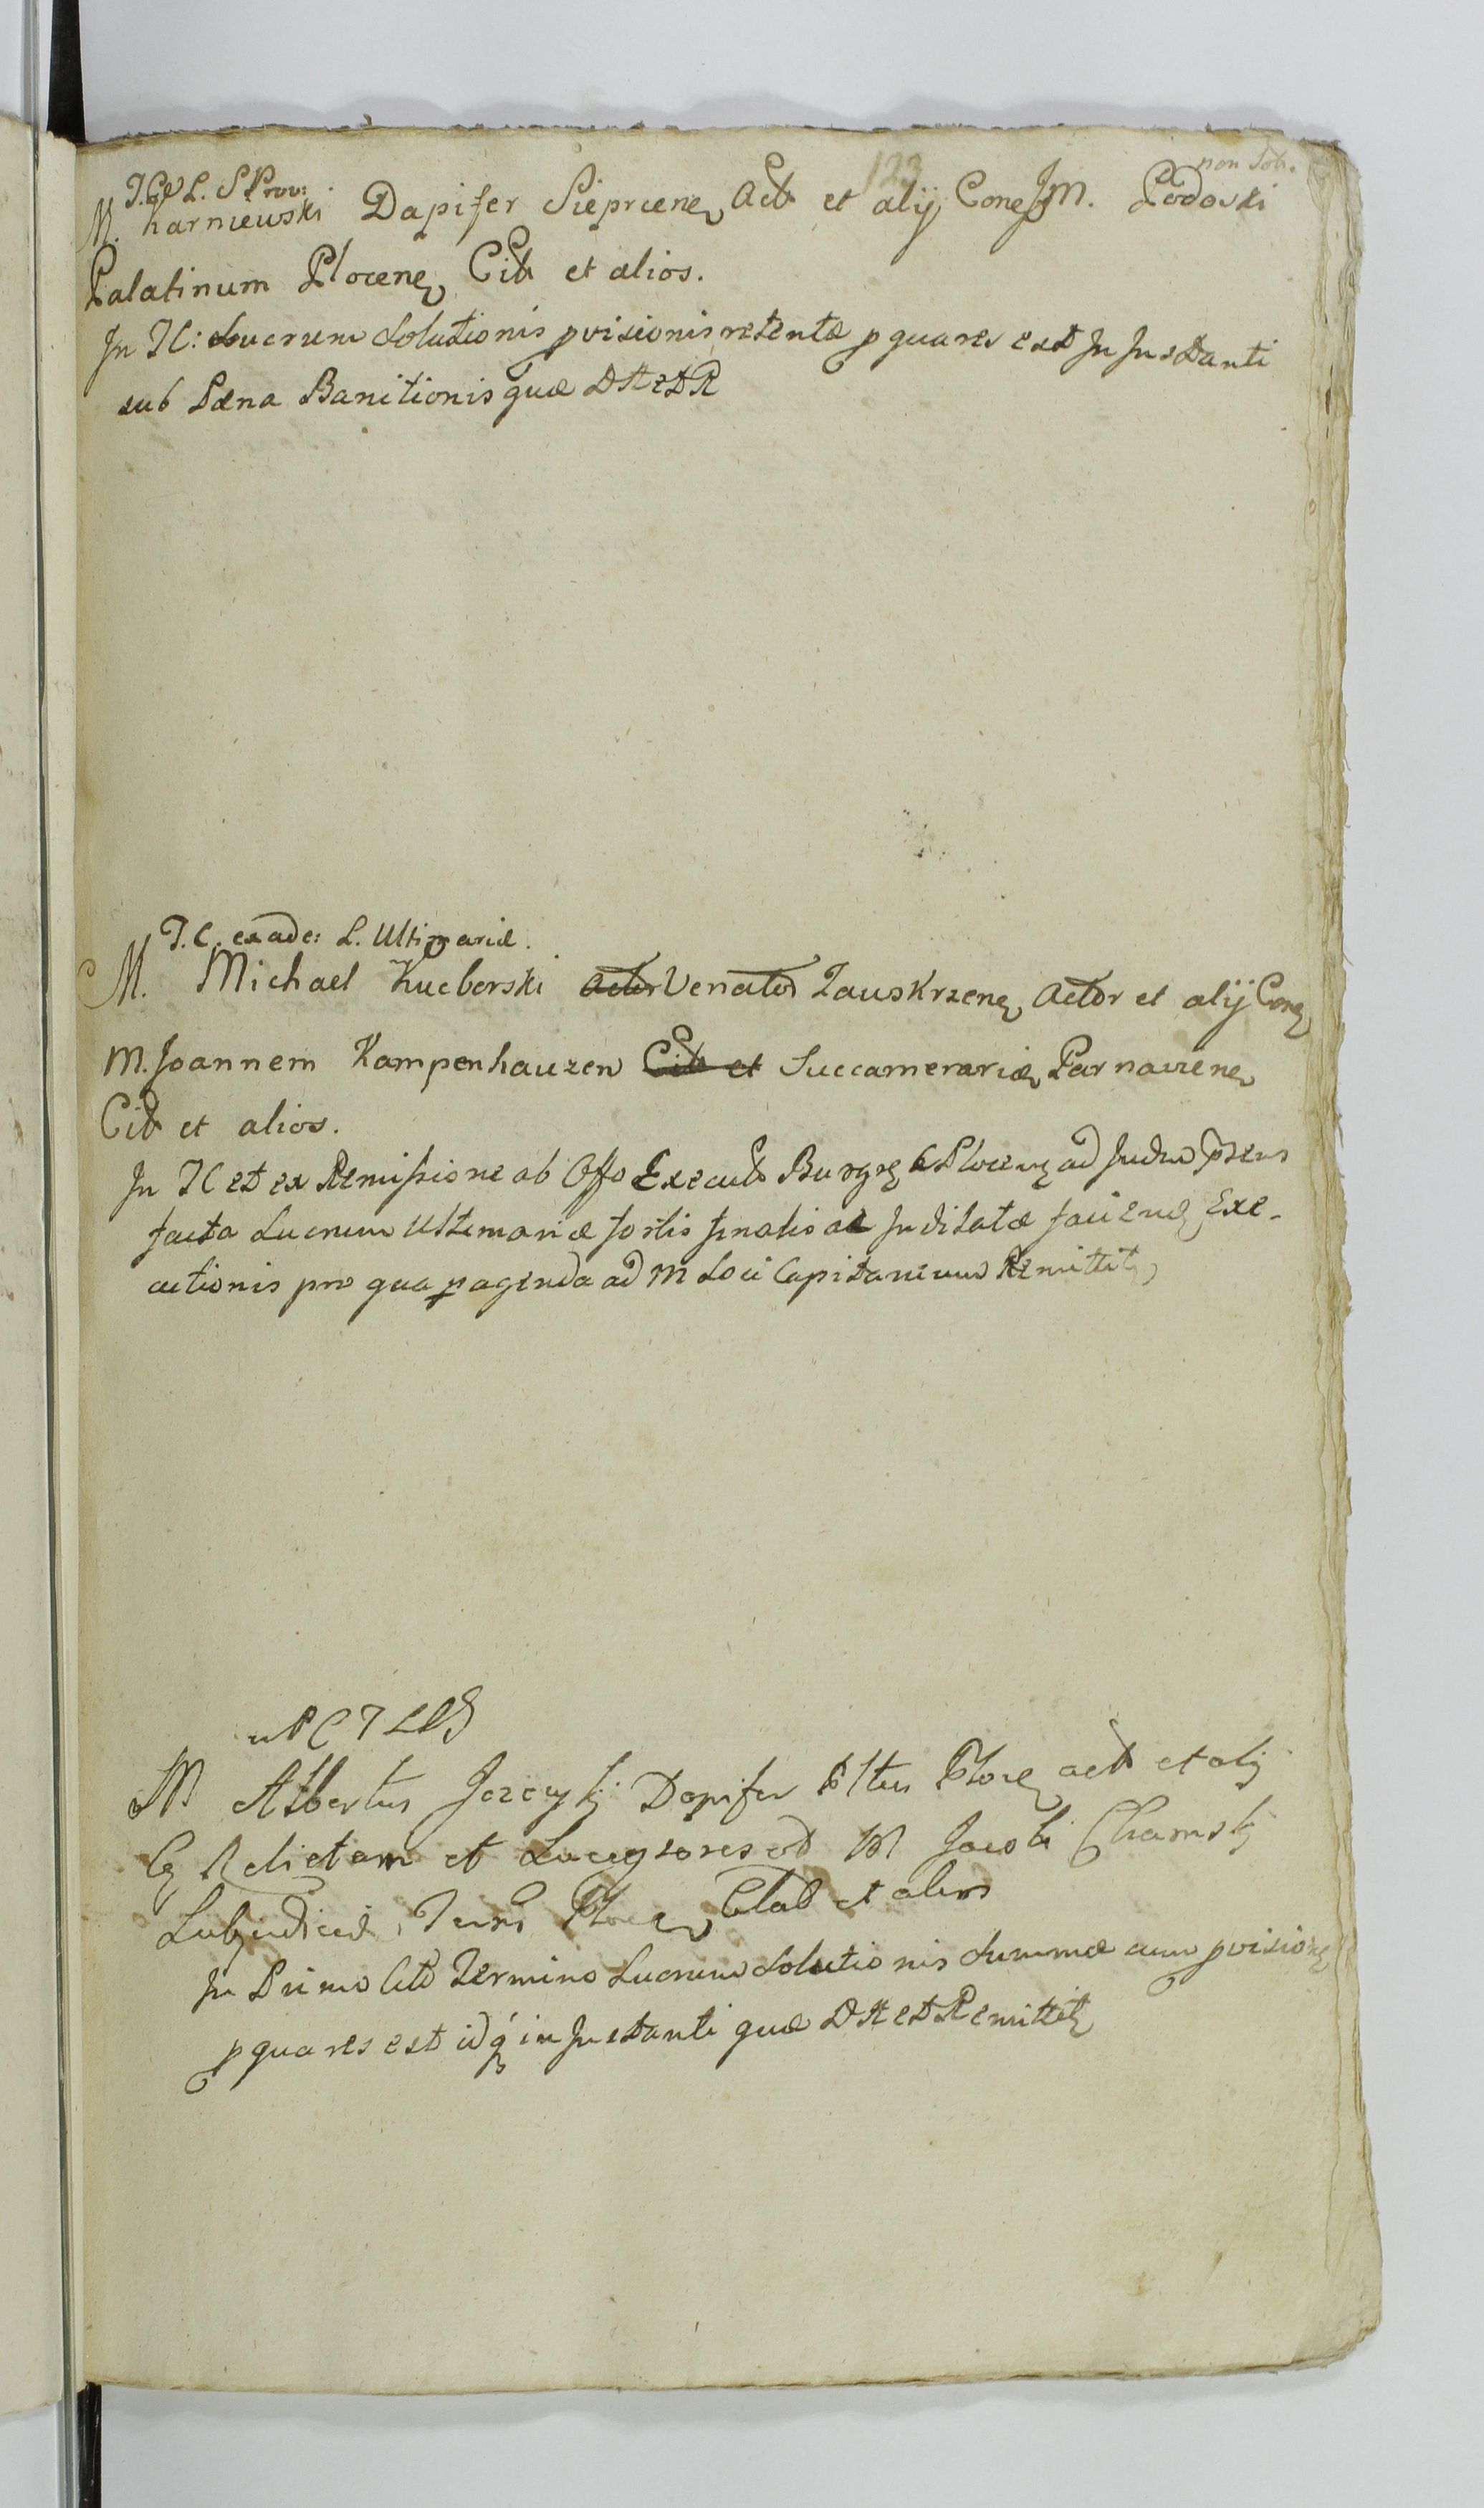 123
non Sol.
T.C. L. S Prov:
M. Karniewski Dapifer Sieprcen Act et alij Con JM. Podoski
Palatinum Plocen Cit et alios.
In TC: Lucrum Solutionis pvisionis retentæ p qua res est In Instanti
sub Pæna Banitionis quæ DHetR
T.C. ex ade: L. Ultimariæ.
M. Michael Kucborski Actor Venator Zauskrzen Actor et alij Con
M. Joannem Kampenhauzen Cit et Succamerariū Parnavien
Cit et alios.
In TC et ex Remissione ab Offo Execut Burg Plocen ad Judm psens
facta Lucrum Ultimariæ fortis finalis ac Inditatæ faciend Exe-
cutionis pro qua pagenda ad M Loci Capitaneum Remittit
M Albertus Jezewskj Dapifer Plocen act et alij
C Relictam et Succesores od M Jacobi Chamskj
Subjudicis Terris Plocen Citat et alios
In Primo Cit Termino Lucrum Solutionis Summæ cum pvisione
p qua res est idq in Instanti quæ DH et Remittit